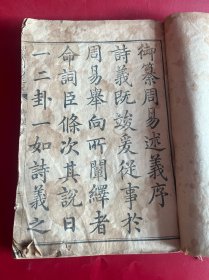 御纂周易述義序
詩義既竣爰從事於
周易舉向所闡繹者
命詞臣條次其說日
一二卦一如詩義之